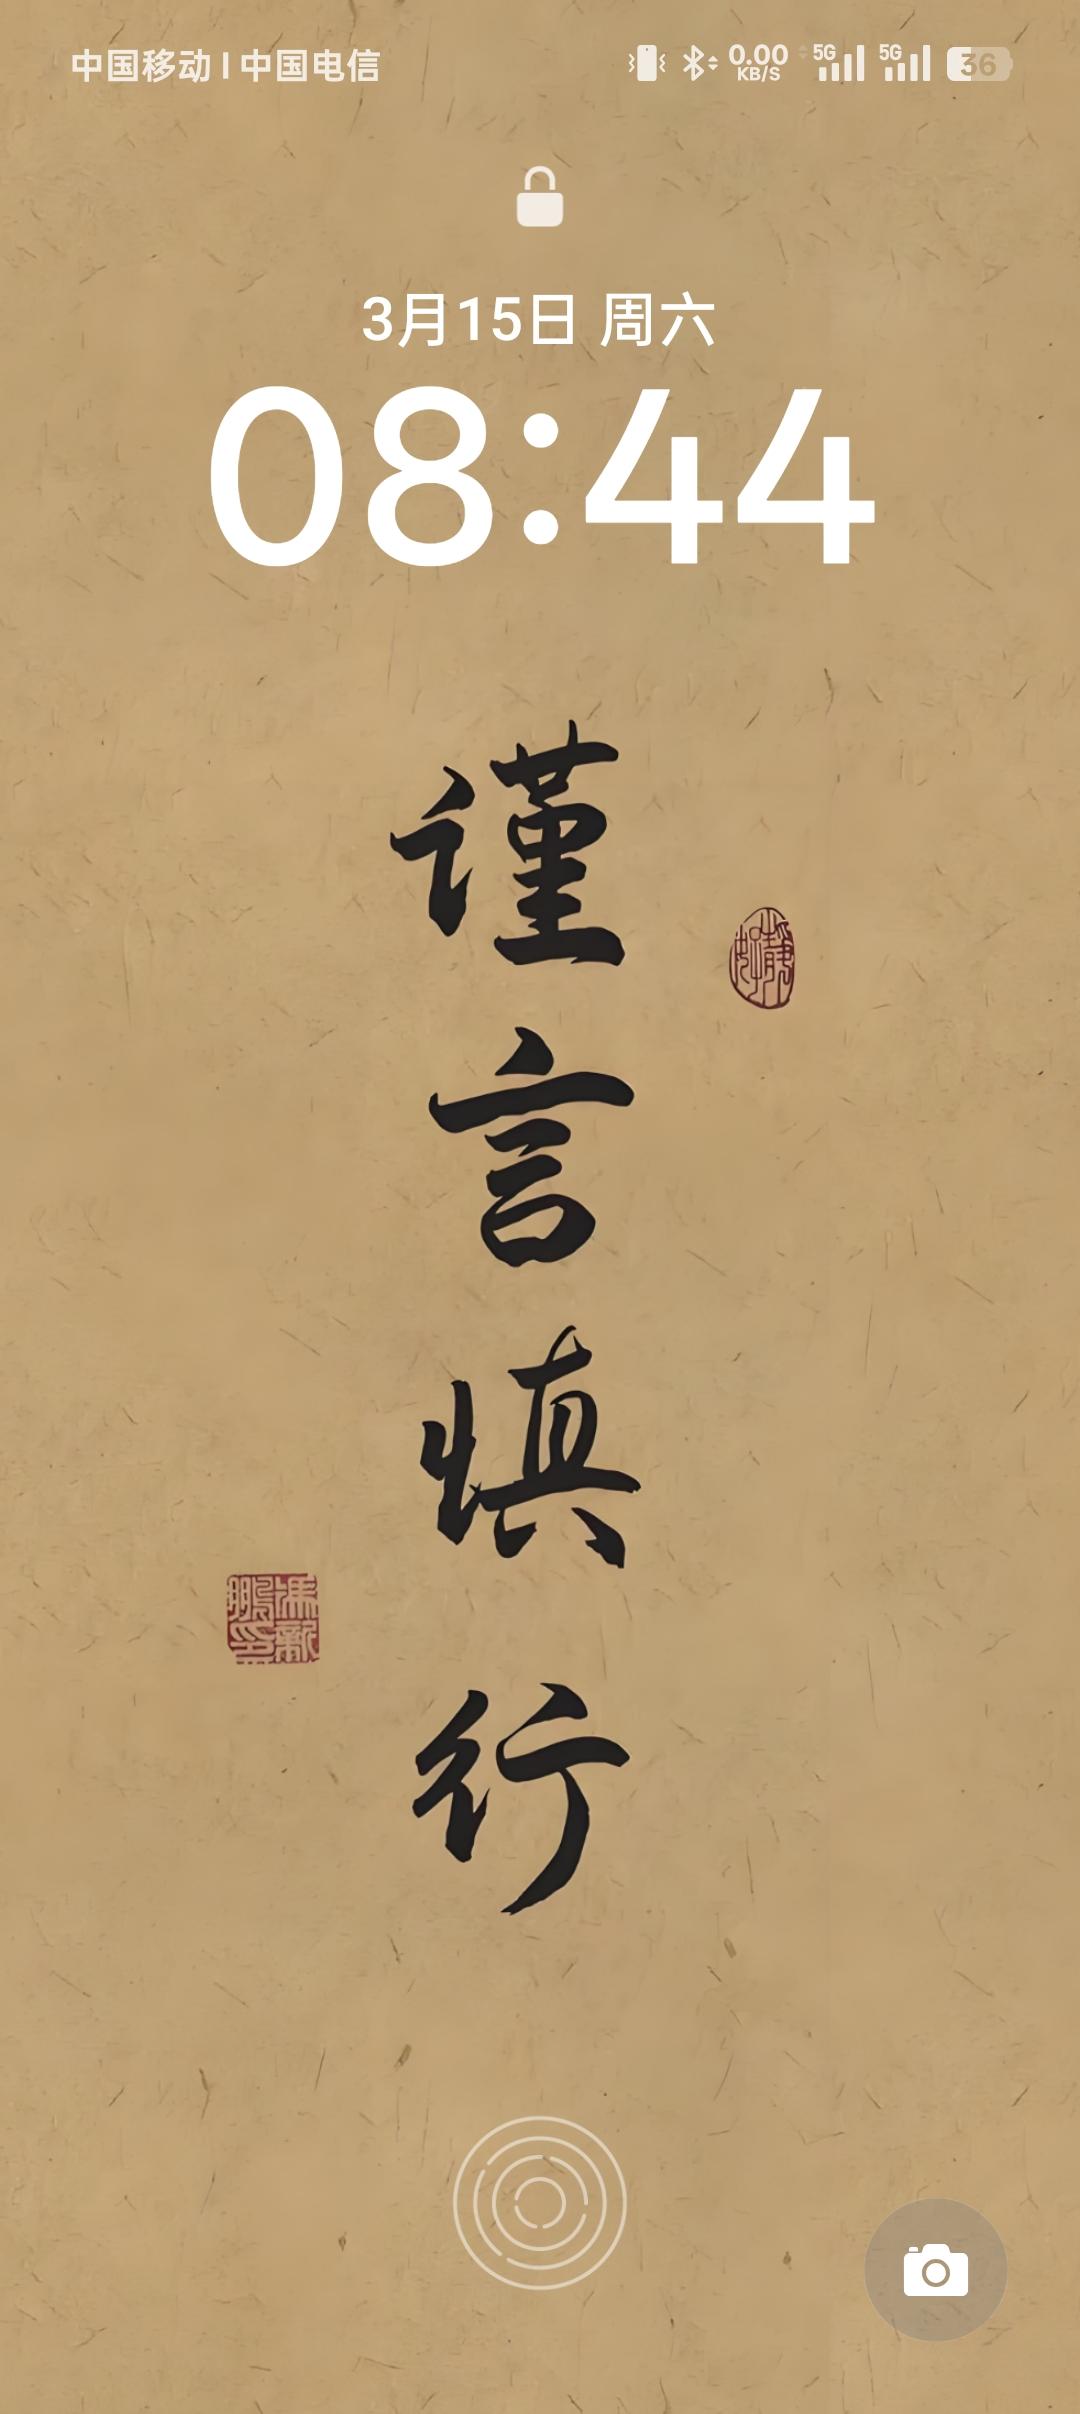 中国移动 | 中国电信
0.00
KB/S
5G
5G
36
3月15日 周六
08:44
谨
言
慎
行